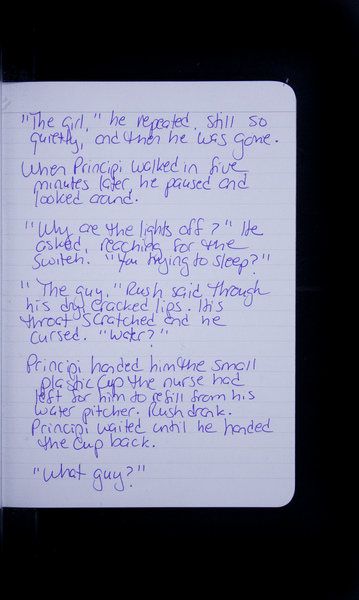 "The girl," he repeated, still so
quietly, and then he was gone.
When Principi walked in five
minutes later, he paused and
looked around.
"Why are the lights off?" He
asked, reaching for the
switch. "You trying to sleep?"
"The guy," Rush said through
his dry cracked lips. His
throat scratched and he
cursed. "Water?"
Principi handed him the small
plastic cup the nurse had
left for him to refill from his
water pitcher. Rush drank.
Principi waited until he handed
the cup back.
"What guy?"